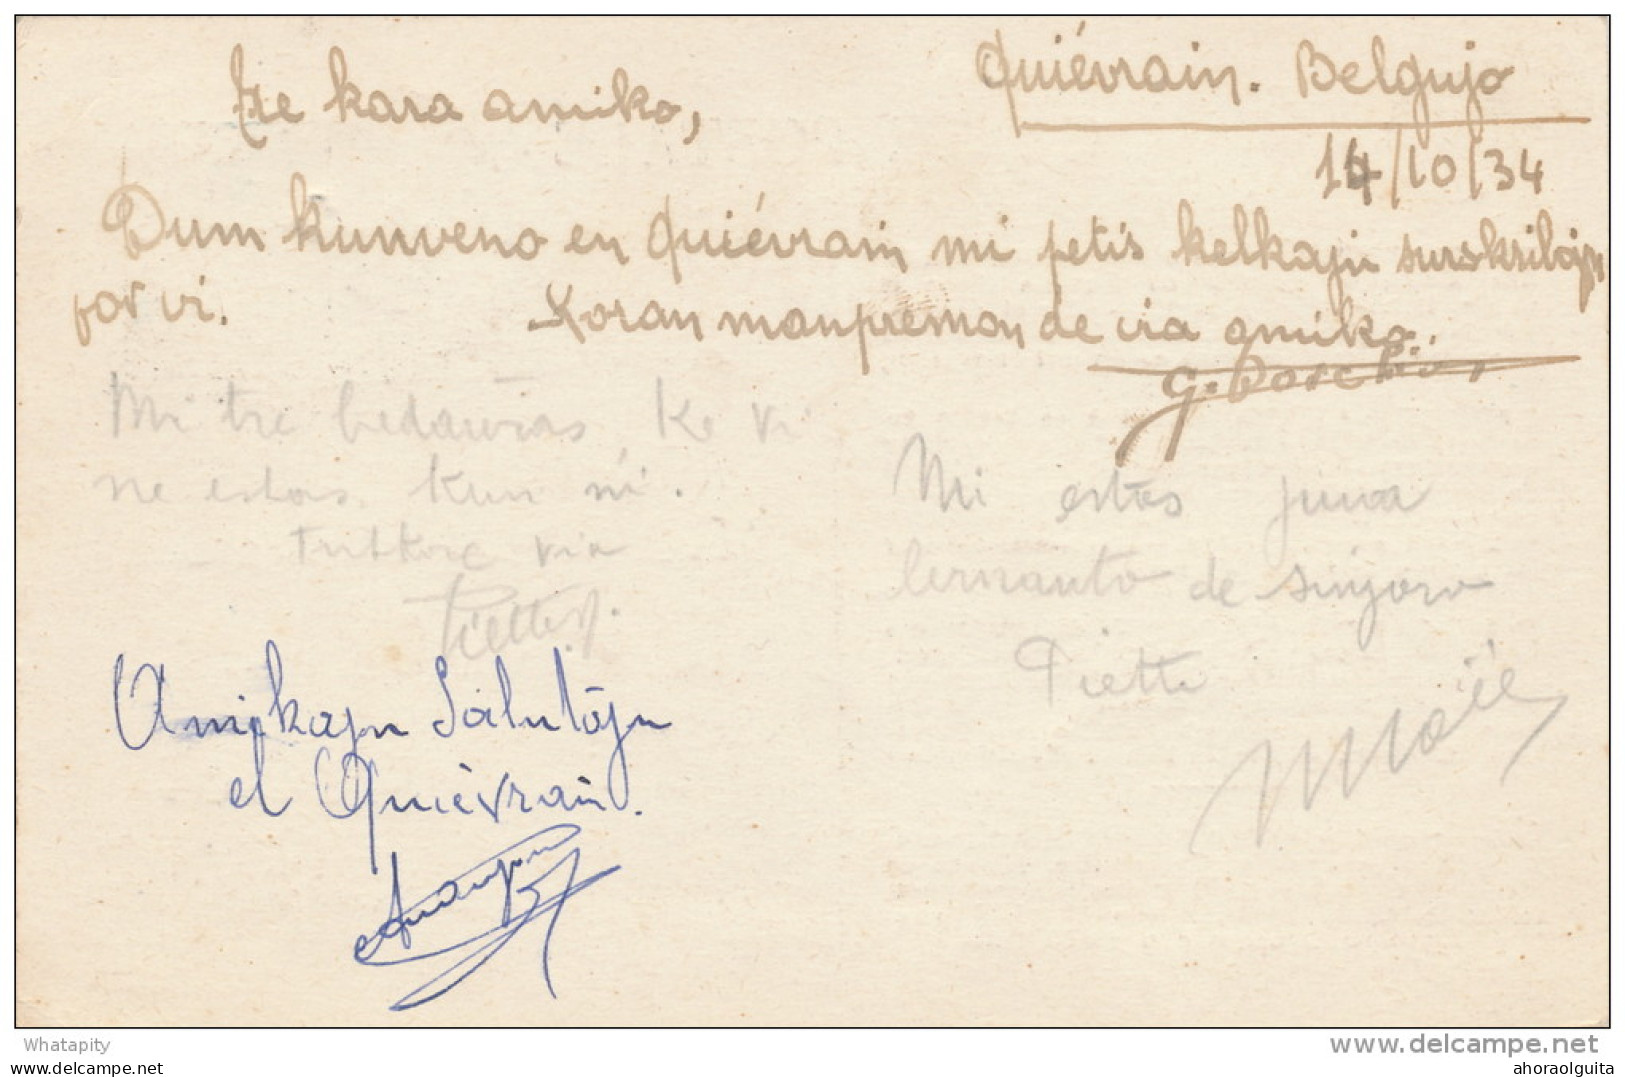 Quiévrain. Belgujo
14/10/34
Tre kara amiko,
Dum kunveno en Quiévrain mi petis kelkajn surskribojn
por vi. Koran manpremon de via amiko.
Mi tre bedaŭras, ke vi
ne estas kun ni.
Tutkore via
Piette
Mi estas juna
lernanto de sinjoro
Piette
Amikajn Salutojn
el Quiévrain.
Whatapity
www.delcampe.net
ahoraolguita